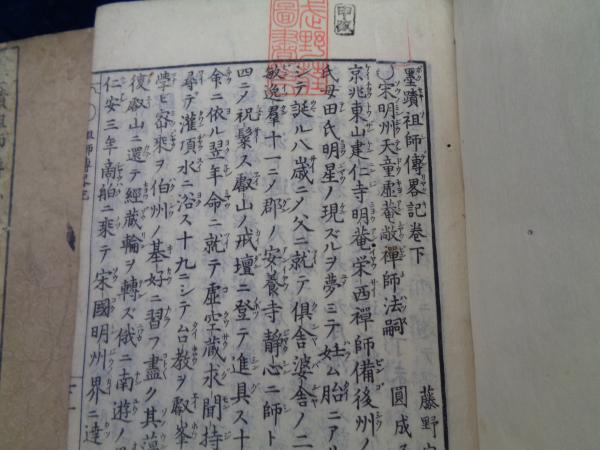 墨蹟祖師傳畧記巻下
藤野
宋明州天童虛菴敞禪師法嗣
圓成
京兆東山建仁寺明菴榮西禪師備後州ノ
氏母田氏明星ノ現ズルヲ夢ミテ妊ム胎ニアル
シテ誕ル八歳ニノ父ニ就テ俱舍婆舍ノ二
敏逸羣十一ニノ郡ノ安養寺静心ニ師ト
四ニノ祝髪ス叡山ノ戒壇ニ登テ進具ス十
命ニ依ル翌年命ニ就テ虛空蔵求聞持
尋デ灌頂水ニ浴ス十九ニシテ台教ヲ叡峯
學ヒ密乘ヲ伯州ノ基好ニ習フ盡ク其薀
復叡山ニ還テ經蔵輪ヲ轉ズ俄ニ南遊ノ
仁安三年商船ニ乘テ宋國明州界ニ達
祖師傳
圖書